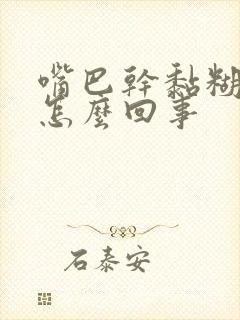 嘴巴幹黏糊
怎麼回事
石泰安